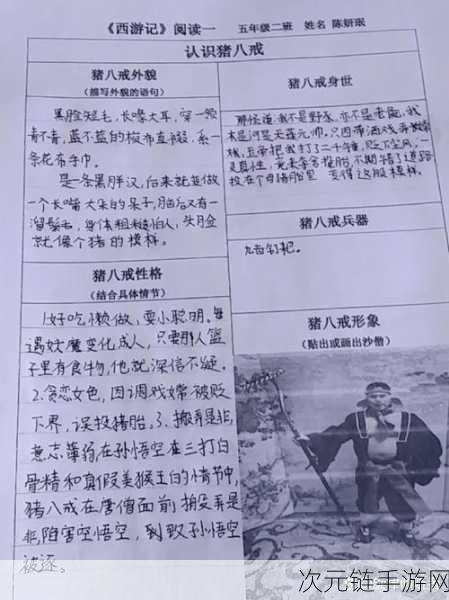 《西游记》阅读一 五年级二班 姓名 陈妍珉
认识猪八戒
猪八戒外貌
（描写外貌的语句）
黑脸短毛，长喙大耳，穿一领
青不青，蓝不蓝的梭布直裰，系一
条花布手巾。
是一条黑胖汉，后来就变做
一个长嘴大耳的呆子，脑后又有一
溜鬃毛，身体粗糙怕人，头脸
就像个猪的模样。
猪八戒性格
（结合具体情节）
1.好吃懒做，耍小聪明。每
遇妖魔变化成人，只要那人篮
子里有食物，他就深信不疑。
2.贪恋女色，因调戏嫦被贬
下界，误投猪胎。3、搬弄是非，
意志薄弱，在孙悟空在三打白
骨精和真假美猴王的情节中，
猪八戒在唐僧面前拍没弄是
非，陷害空悟空，到致孙悟空
被逐。
猪八戒身世
我不是野豕，亦不是老彘，我
本是河是天蓬元帅，只因带酒戏弄嫦娥
玉帝把我打了二千锤，贬下尘凡，一
灵真性，竟来夺舍投胎，不期错了道路
投在个母猪胎里，变得这般模样。
猪八戒兵器
九齿钉耙。
猪八戒形象
（贴出或画出沙僧）
次元链手游网